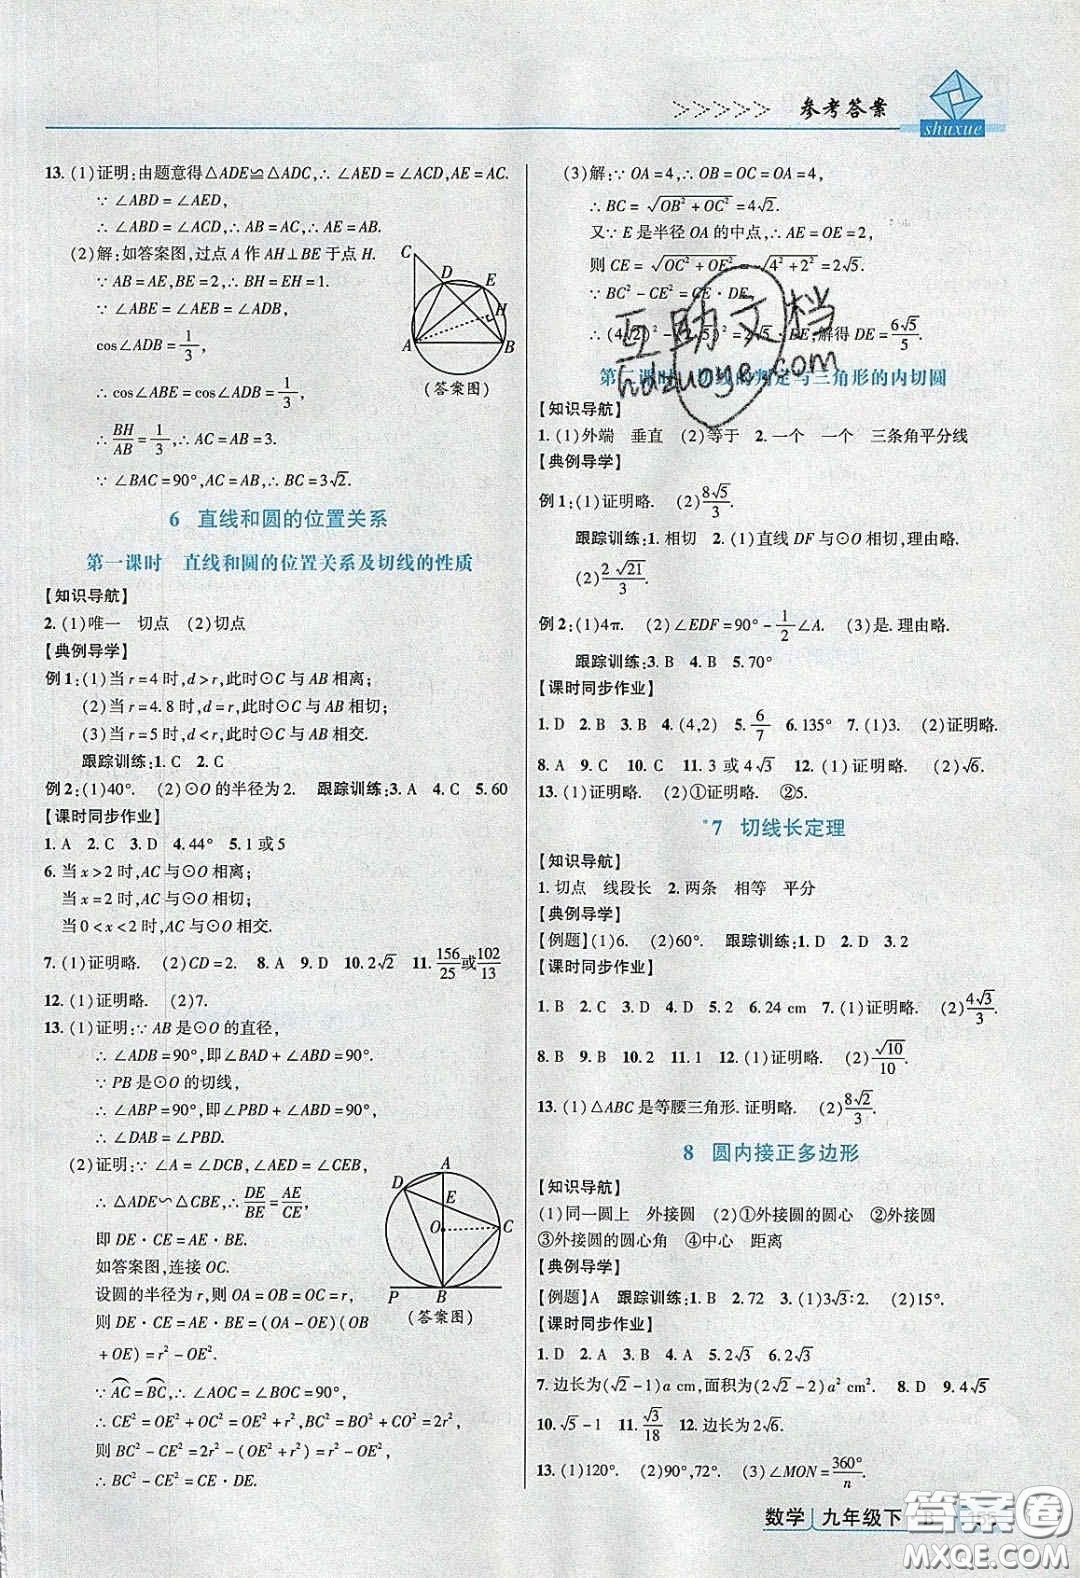 >>>>> 参考答案
shuxue
13. (1)证明:由题意得△ADE≌△ADC,∴∠AED=∠ACD,AE=AC.
∵∠ABD=∠AED,
∴∠ABD=∠ACD,∴AB=AC,∴AE=AB.
(2)解:如答案图,过点A作AH⊥BE于点H.
∵AB=AE,BE=2,∴BH=EH=1.
∵∠ABE=∠AEB=∠ADB,
cos∠ADB=1/3,
∴cos∠ABE=cos∠ADB=1/3,
∴BH/AB=1/3,∴AC=AB=3.
∵∠BAC=90°,AC=AB,∴BC=3√2.
C
D
E
H
A
B
(答案图)
6 直线和圆的位置关系
第一课时 直线和圆的位置关系及切线的性质
【知识导航】
2. (1)唯一 切点 (2)切点
【典例导学】
例1:(1)当r=4时,d>r,此时⊙C与AB相离;
(2)当r=4.8时,d=r,此时⊙C与AB相切;
(3)当r=5时,d<r,此时⊙C与AB相交.
跟踪训练:1. C 2. C
例2:(1)40°. (2)⊙O的半径为2. 跟踪训练:3. A 4. C 5. 60
【课时同步作业】
1. A 2. C 3. D 4. 44° 5. 1或5
6. 当x>2时,AC与⊙O相离;
当x=2时,AC与⊙O相切;
当0<x<2时,AC与⊙O相交.
7. (1)证明略. (2)CD=2. 8. A 9. D 10. 2√2 11. 156/25或102/13
12. (1)证明略. (2)7.
13. (1)证明:∵AB是⊙O的直径,
∴∠ADB=90°,即∠BAD+∠ABD=90°.
∵PB是⊙O的切线,
∴∠ABP=90°,即∠PBD+∠ABD=90°,
∴∠DAB=∠PBD.
(2)证明:∵∠A=∠DCB,∠AED=∠CEB,
∴△ADE∽△CBE,∴DE/BE=AE/CE,
即DE·CE=AE·BE.
如答案图,连接OC.
设圆的半径为r,则OA=OB=OC=r,
则DE·CE=AE·BE=(OA-OE)(OB
+OE)=r²-OE².
∵AC=BC,∴∠AOC=∠BOC=90°,
∴CE²=OE²+OC²=OE²+r²,BC²=BO²+CO²=2r²,
则BC²-CE²=2r²-(OE²+r²)=r²-OE²,
∴BC²-CE²=CE·DE.
A
D
E
O
C
P
B
(答案图)
(3)解:∵OA=4,∴OB=OC=OA=4,
∴BC=√(OB²+OC²)=4√2.
又∵E是半径OA的中点,∴AE=OE=2,
则CE=√(OC²+OE²)=√(4²+2²)=2√5.
∵BC²-CE²=CE·DE,
∴(4√2)²-(2√5)²=2√5·DE,解得DE=6√5/5.
第二课时 切线的判定与三角形的内切圆
【知识导航】
1. (1)外端 垂直 (2)等于 2. 一个 一个 三条角平分线
【典例导学】
例1:(1)证明略. (2)8√5/3.
跟踪训练:1. 相切 2. (1)直线DF与⊙O相切,证明略.
(2)2√21/3.
例2:(1)4π. (2)∠EDF=90°-1/2∠A. (3)是.理由略.
跟踪训练:3. B 4. B 5. 70°
【课时同步作业】
1. D 2. B 3. B 4. (4,2) 5. 6/7 6. 135° 7. (1)3. (2)证明略.
8. A 9. C 10. C 11. 3或4√3 12. (1)证明略. (2)√6.
13. (1)证明略. (2)①证明略. ②5.
*7 切线长定理
【知识导航】
1. 切点 线段长 2. 两条 相等 平分
【典例导学】
【例题】(1)6. (2)60°. 跟踪训练:1. D 2. D 3. 2
【课时同步作业】
1. B 2. C 3. C 4. D 5. 2 6. 24 cm 7. (1)证明略. (2)4√3/3.
8. B 9. B 10. 2 11. 4 12. (1)证明略. (2)√10/10.
13. (1)△ABC是等腰三角形.证明略. (2)8√2/3.
8 圆内接正多边形
【知识导航】
(1)同一圆上 外接圆 (2)①外接圆的圆心 ②外接圆
③外接圆的圆心角 ④中心 距离
【典例导学】
【例题】A 跟踪训练:1. B 2. 72 3. (1)3√3:2. (2)15°.
【课时同步作业】
1. D 2. D 3. B 4. A 5. 2√3 6. 2√3
7. 边长为(√2-1)a cm,面积为(2√2-2)a² cm². 8. D 9. 4√5
10. √5-1 11. √3/18 12. 边长为2√6.
13. (1)120°. (2)90°,72°. (3)∠MON=360°/n.
数学 九年级下
互助文档
hdzuoye.com
答案圈
MXQE.COM